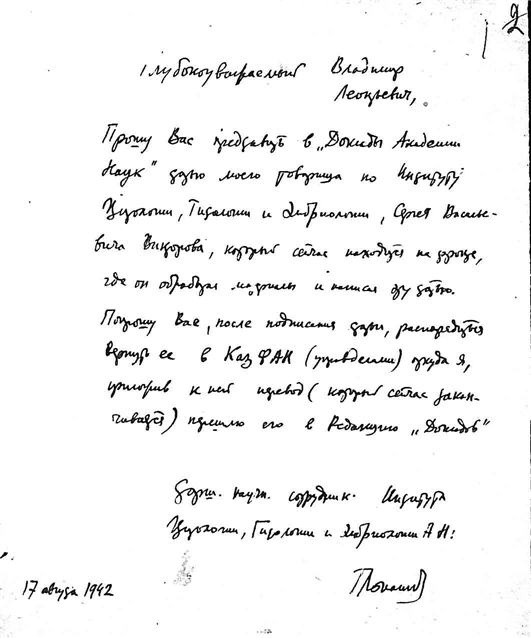 2
Глубокоуважаемый Владимир
Леонтьевич,
Прошу Вас представить в „Доклады Академии
Наук" статью моего товарища по Институту
Цитологии, Гистологии и Эмбриологии, Сергея Василь-
евича Викторова, который сейчас находится на фронте,
где он обработал материалы и написал эту статью.
Попрошу Вас, после подписания статьи, распорядиться
вернуть ее в КазФАН (управделами) откуда я,
приложив к ней перевод (который сейчас закан-
чивается) перешлю его в Редакцию „Докладов"
Старш. научн. сотрудник Института
Цитологии, Гистологии и Эмбриологии АН:
17 августа 1942